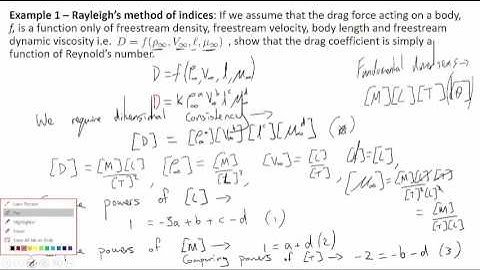 Example 1 – Rayleigh's method of indices: If we assume that the drag force acting on a body,
f, is a function only of freestream density, freestream velocity, body length and freestream
dynamic viscosity i.e. D = f(ρ∞, V∞, ℓ, μ∞) , show that the drag coefficient is simply a
function of Reynold's number.
D = f(ρ∞, V∞, ℓ, μ∞)
Fundamental dimensions →
[M][L][T][θ]
D = k ρ∞^a V∞^b ℓ^c μ∞^d
We require dimensional consistency →
[D] = [ρ∞^a][V∞^b][ℓ^c][μ∞^d] (*)
[D] = [M][L]/[T]^2, [ρ∞] = [M]/[L]^3, [V∞] = [L]/[T], [ℓ] = [L],
[μ∞] = [M][L][T]/[T]^2[L]^2
= [M]/[T][L]
powers of [L] →
1 = -3a + b + c - d (1)
powers of [M] → 1 = a + d (2)
Comparing powers of [T] → -2 = -b - d (3)
Pen
Highlighter
Eraser